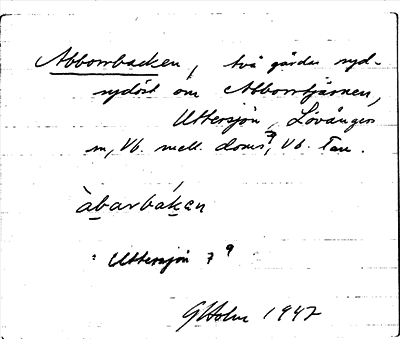 Abborrbacken, två gårdar syd-
sydöst om Abborrtjärnen,
Uttersjön, Lövångers
n, Vb. mell. doms, Vb. län.
àbarbákan
Uttersjön 7 9
GHolm 1947